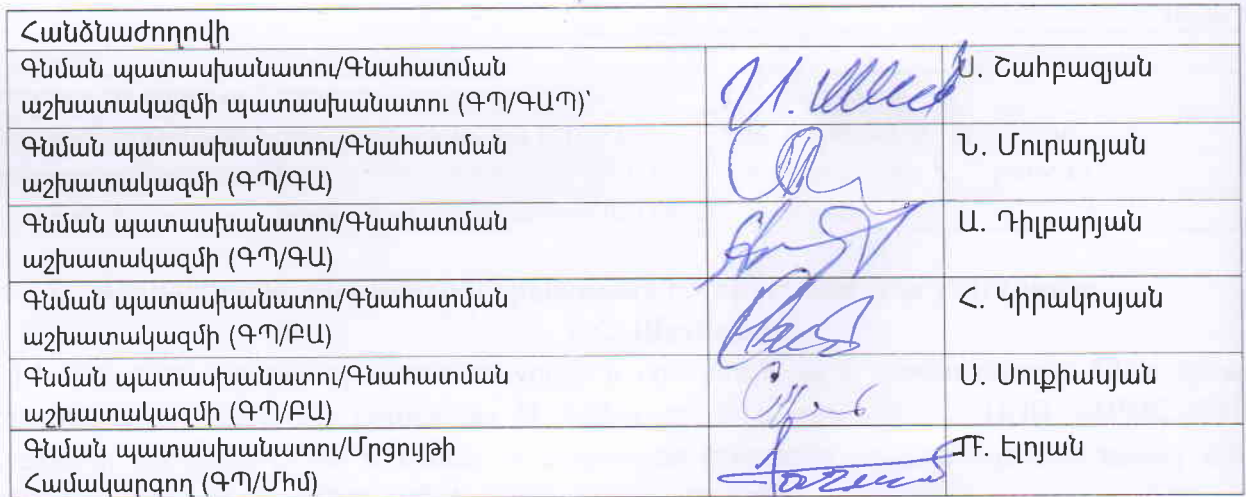 Հանձնաժողովի
Գնման պատասխանատու/Գնահատման
աշխատակազմի պատասխանատու (ԳՊ/ԳԱՊ)՝
Ս. Շահբազյան
Գնման պատասխանատու/Գնահատման
աշխատակազմի (ԳՊ/ԳԱ)
Ն. Մուրադյան
Գնման պատասխանատու/Գնահատման
աշխատակազմի (ԳՊ/ԳԱ)
Ա. Դիլբարյան
Գնման պատասխանատու/Գնահատման
աշխատակազմի (ԳՊ/ԲԱ)
Հ. Կիրակոսյան
Գնման պատասխանատու/Գնահատման
աշխատակազմի (ԳՊ/ԲԱ)
Ս. Սուքիասյան
Գնման պատասխանատու/Մրցույթի
Համակարգող (ԳՊ/Մհմ)
Էլոյան